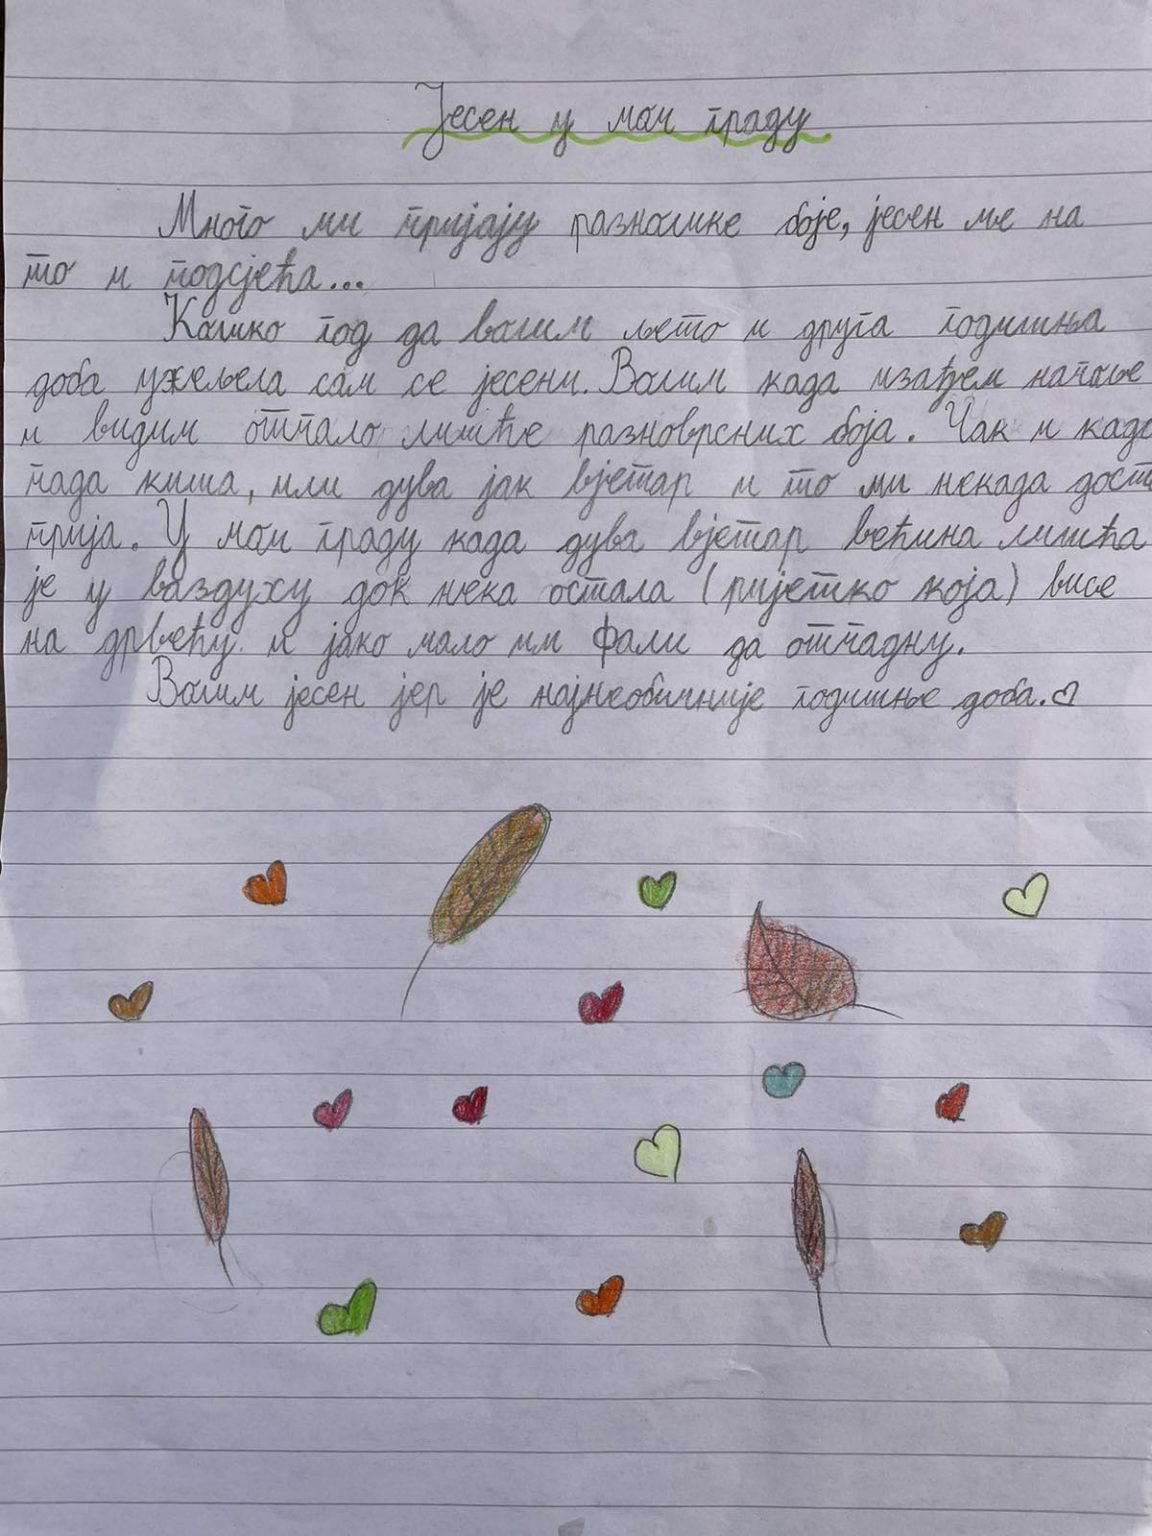 Јесен у мом граду
Много ми пријају разнолике боје, јесен ме на
то и подсјећа...
Колико год да волим љето и друга годишња
доба ужељела сам се јесени. Волим када изађем напоље
и видим отпало лишће разноврсних боја. Чак и када
пада киша, или дува јак вјетар и то ми некада
прија. У мом граду када дува вјетар већина лишћа
је у ваздуху док нека остала (ријетко која) висе
на дрвећу и јако мало им фали да отпадну.
Волим јесен јер је најнеобичније годишње доба.♡